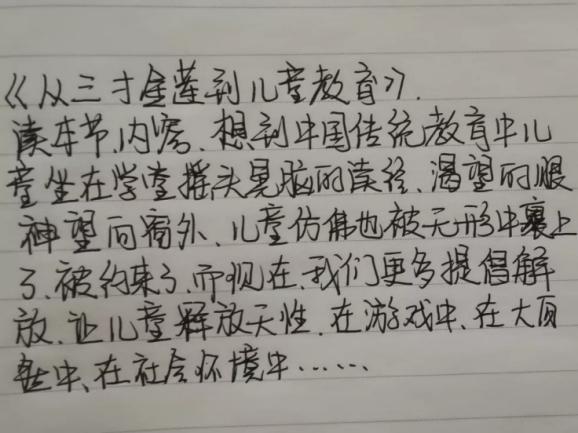 《从三寸金莲到儿童教育》.
读本节内容、想到中国传统教育中儿
童坐在学堂摇头晃脑的读经、渴望的眼
神望向窗外、儿童仿佛也被无形中裹上
了、被约束了、而现在、我们更多提倡解
放、让儿童释放天性、在游戏中、在大自
然中、在社会环境中……